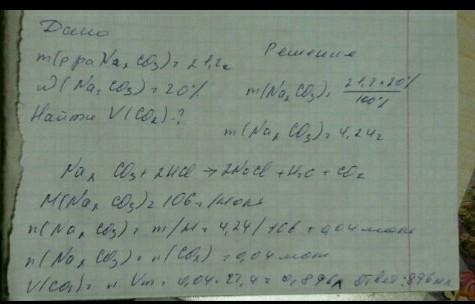 Дано
Решение
m(р-ра Na₂CO₃) = 21,2г
ω(Na₂CO₃) = 20%
m(Na₂CO₃) = 21,2*20% / 100%
Найти V(CO₂)-?
m(Na₂CO₃) = 4,24г
Na₂CO₃ + 2HCl → 2NaCl + H₂O + CO₂
M(Na₂CO₃) = 106г/моль
n(Na₂CO₃) = m/M = 4,24/106 = 0,04 моль
n(Na₂CO₃) = n(CO₂) = 0,04 моль
V(CO₂) = n·Vm = 0,04·22,4 = 0,896л ответ: 896 мл